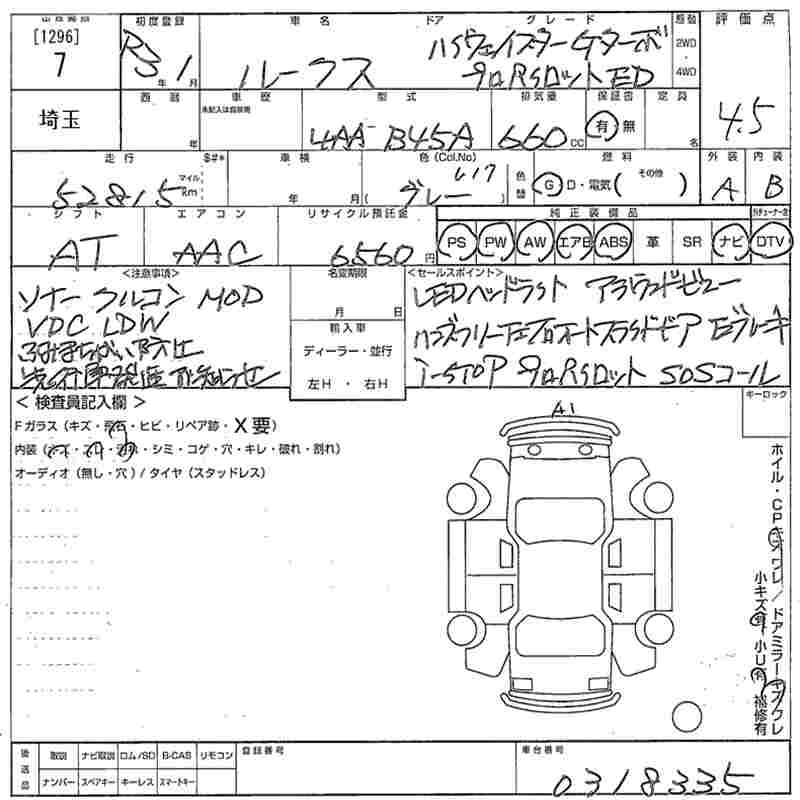 [1296]
7
埼玉
初度登録
R3年1月
車名 ドア グレード
ルークス
ハイウェイスターGターボ
プロパイロット ED
駆動
2WD
4WD
評価点
4.5
西暦
年
車歴
未記入は自家用
型式
4AA-B45A
排気量
660cc
保証書
有・無
定員
名
走行
52815
マイル
Km
車検
年 月(
色(Col.No)
グレー
)
色替
燃料
G・D・電気( その他 )
外装
A
内装
B
シフト
AT
エアコン
AAC
リサイクル預託金
6560円
純正装備品
PS PW AW エアB ABS 革 SR ナビ DTV
<注意事項>
ソナー クルコン MOD
VDC LDW
ふみまちがい防止
先行車発進お知らせ
名変期限
月 日
輸入車
ディーラー・並行
左H・右H
<セールスポイント>
LEDヘッドライト アラウンドビュー
ハンズフリー
i-STOP プロパイロット SOSコール
<検査員記入欄>
Fガラス(キズ・飛石・ヒビ・リペア跡・X要)
内装(
・シミ・コゲ・穴・キレ・破れ・割れ)
オーディオ(無し・穴)/タイヤ(スタッドレス)
A1
キーロック
ホイル・CPキズ ワレ/ドアミラーキズ ワレ
小キズ有 小U有 補修有
後送品
取説 ナビ取説 ロム/SD B-CAS リモコン
ナンバー スペアキー キーレス スマートキー
登録番号
車台番号
0318335